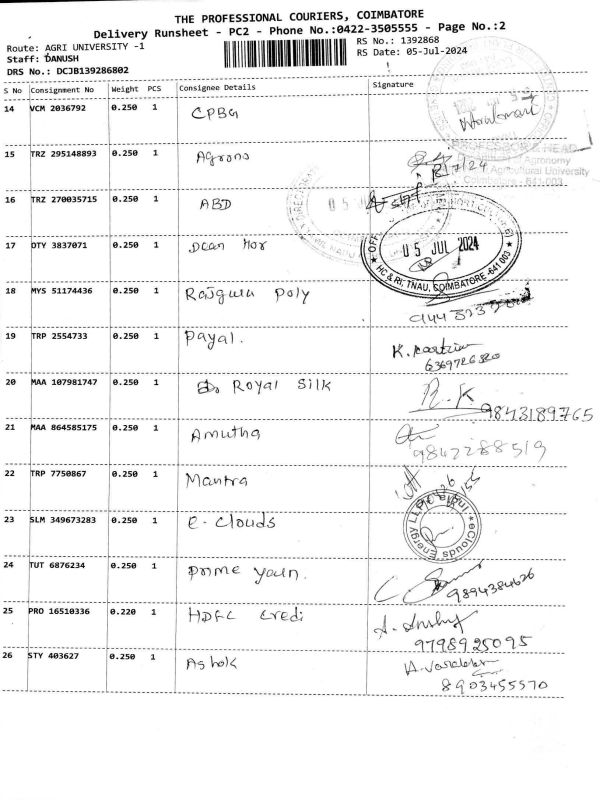 THE PROFESSIONAL COURIERS, COIMBATORE
Delivery Runsheet - PC2 - Phone No.:0422-3505555 - Page No.:2
Route: AGRI UNIVERSITY -1
RS No.: 1392868
Staff: DANUSH
RS Date: 05-Jul-2024
DRS No.: DCJB139286802
S No Consignment No Weight PCS Consignee Details Signature
14 VCM 2036792 0.250 1 CPBG
PROFESSOR & HEAD
15 TRZ 295148893 0.250 1 Agrono
Agronomy
Agricultural University
Coimbatore - 641 003
16 TRZ 270035715 0.250 1 ABD
17 DTY 3837071 0.250 1 Dean Hor
05 JUL 2024
HC & RI, TNAU, COIMBATORE -641 003
18 MYS 51174436 0.250 1 Rajguru Poly
19 TRP 2554733 0.250 1 Payal.
20 MAA 107981747 0.250 1 Royal Silk
R.K
9843189765
21 MAA 864585175 0.250 1 Amutha
9842288519
22 TRP 7750867 0.250 1 Mantra
23 SLM 349673283 0.250 1 E-Clouds
eClouds Energy LLP
24 TUT 6876234 0.250 1 Prime
9894384626
25 PRO 16510336 0.220 1 HDFC Credi
9798925095
26 STY 403627 0.250 1 Ashok
8903455570